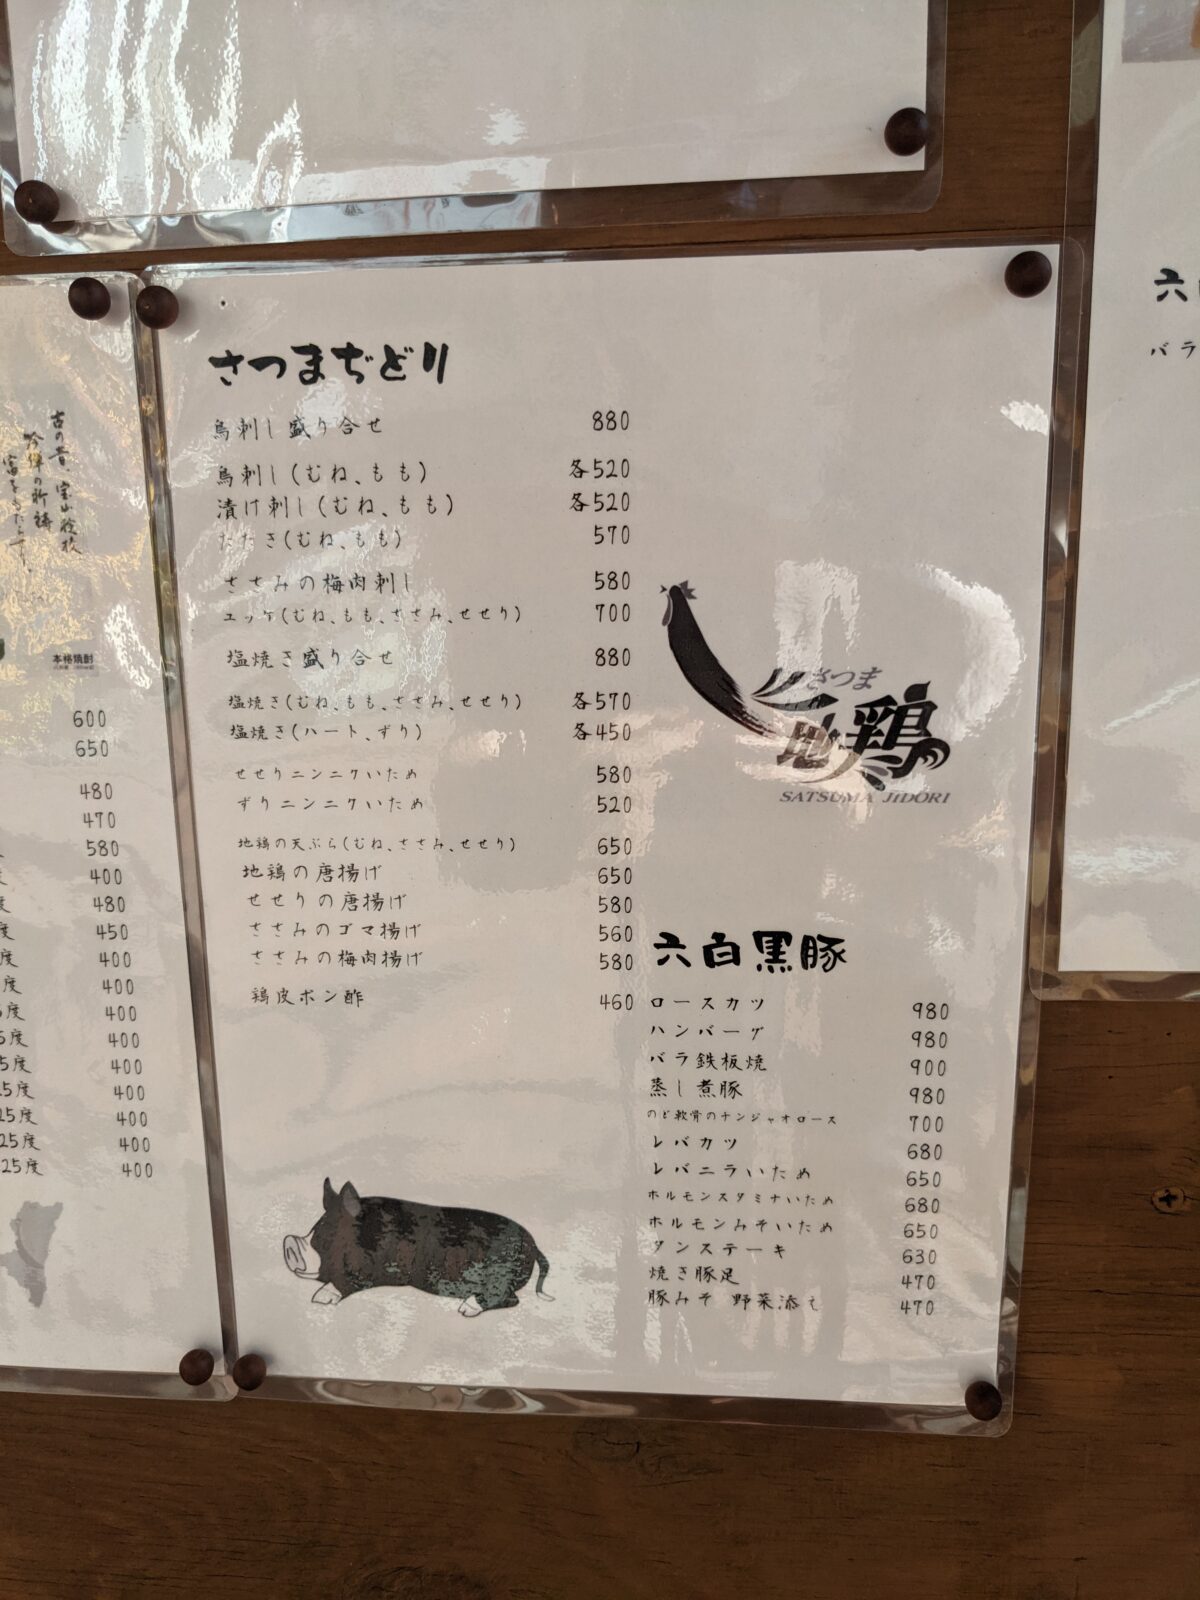 古の昔、宝山検校
本格焼酎
600
650
480
470
580
400
480
度 450
度 400
度 400
5度 400
5度 400
5度 400
25度 400
25度 400
25度 400
25度 400
さつまぢどり
鳥刺し盛り合せ 880
鳥刺し(むね、もも) 各520
漬け刺し(むね、もも) 各520
たたき(むね、もも) 570
ささみの梅肉刺し 580
ユッケ(むね、もも、ささみ、せせり) 700
塩焼き盛り合せ 880
塩焼き(むね、もも、ささみ、せせり) 各570
塩焼き(ハート、ずり) 各450
せせりニンニクいため 580
ずりニンニクいため 520
地鶏の天ぷら(むね、ささみ、せせり) 650
地鶏の唐揚げ 650
せせりの唐揚げ 580
ささみのゴマ揚げ 560
ささみの梅肉揚げ 580
鶏皮ポン酢 460
さつま
地鶏
SATSUMA JIDORI
六白黒豚
ロースカツ 980
ハンバーグ 980
バラ鉄板焼 900
蒸し煮豚 980
のど軟骨のナンジャオロース 700
レバカツ 680
レバニラいため 650
ホルモンスタミナいため 680
ホルモンみそいため 650
タンステーキ 630
焼き豚足 470
豚みそ 野菜添え 470
六
バラ